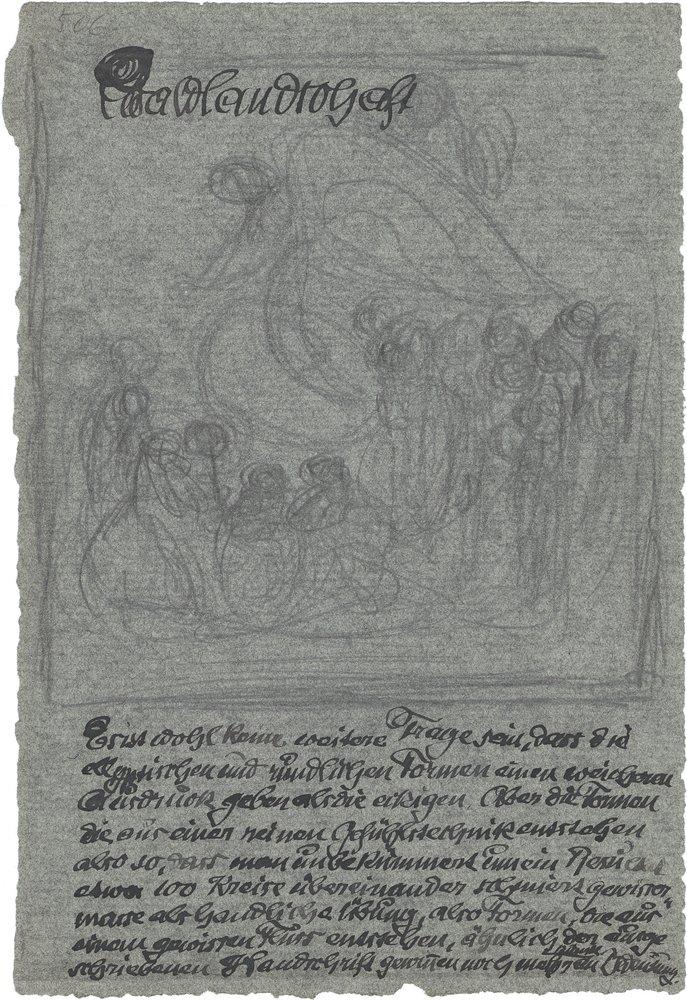 506
Waldlandschaft
Es ist wohl keine weitere Frage sein, dass die
elypsischen und rundlichen Formen einen weicheren
Ausdruck geben als die eckigen. Aber die Formen
die aus einer reinen Gefühlstechnik entstehen
also so, dass man unbekümmert um ein Resultat
etwa 100 Kreise übereinander schmiert gewisser
masse als handliche Übung, also Formen, die aus
einem gewissen Kurs entstehen, ähnlich der ausge
schriebenen Handschrift gewinnen noch mehr an